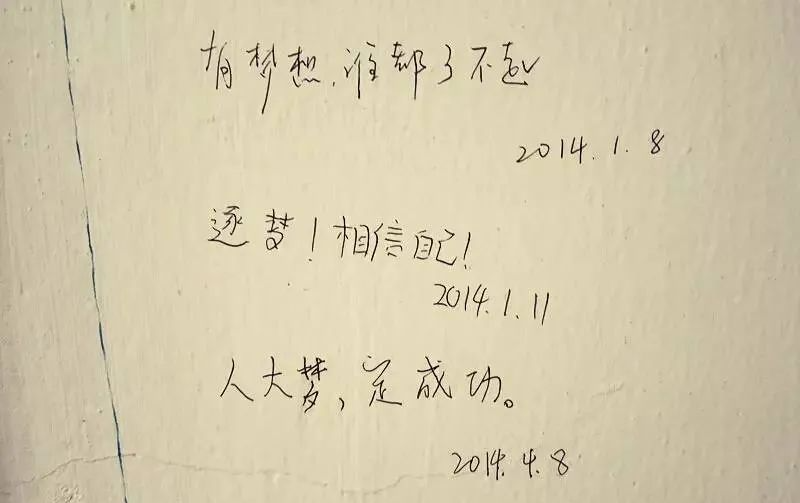 有梦想,谁都了不起
2014.1.8
逐梦!相信自己!
2014.1.11
人大梦,定成功。
2014.4.8